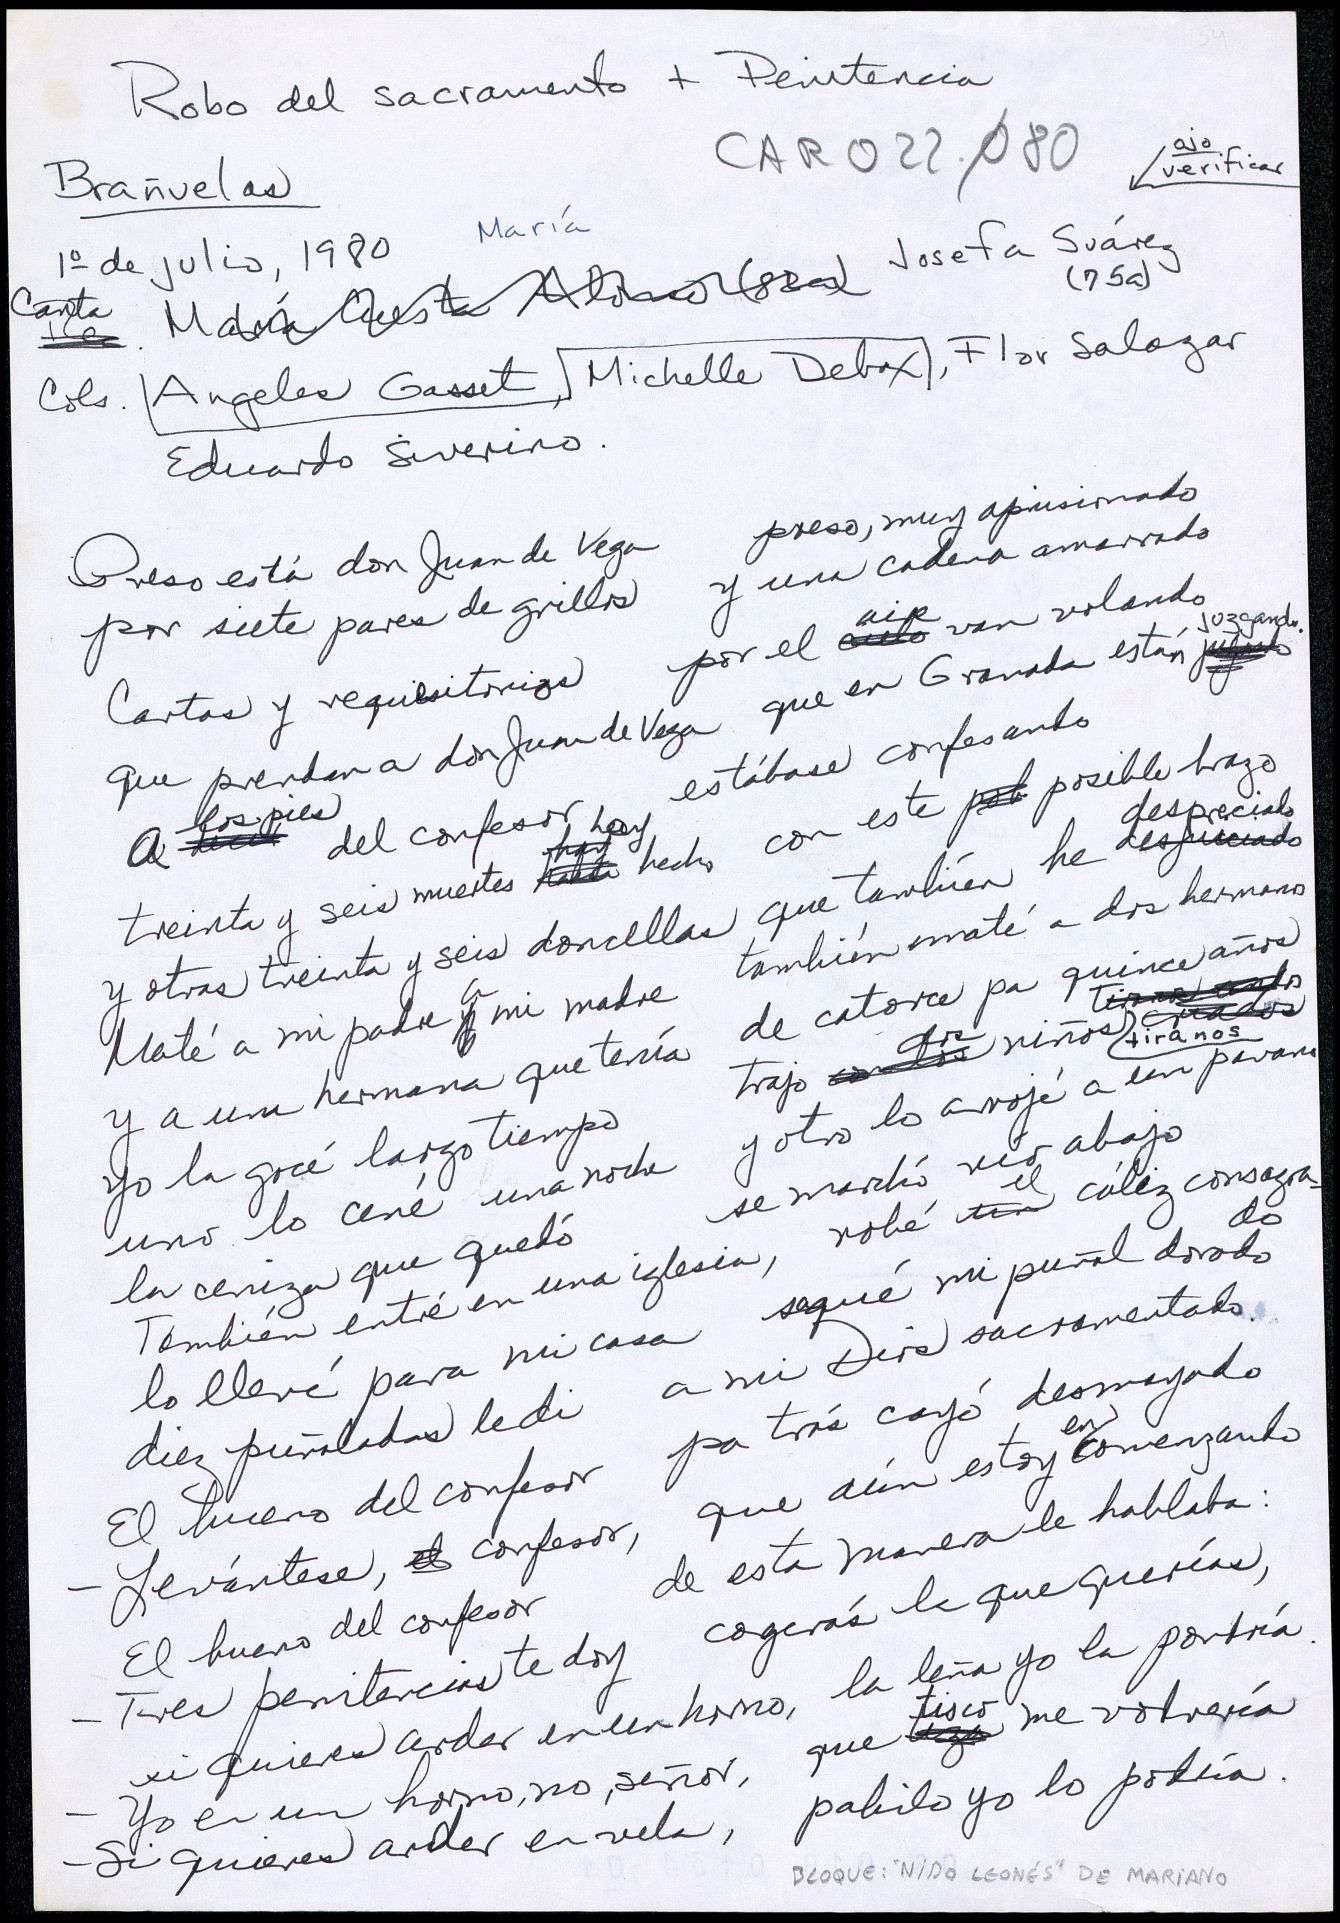 Robo del sacramento + Penitencia
CARO22.080
ojo
verificar
Brañuelas
1º de julio, 1980
María
Josefa Suárez
(75a)
Canta
María Cuesta Alonso (82a)
Cols. Angeles Gasset, Michelle Debax, Flor Salazar
Eduardo Siverino.
Preso está don Juan de Vega preso, muy aprisionado
por siete pares de grillos y una cadena amarrado
Cartas y requisitorias por el aire van volando
que prendan a don Juan de Vega que en Granada están juzgando.
A los pies del confesor estábase confesando
treinta y seis muertes hay hecho con este posible brazo
y otras treinta y seis doncellas que también he despreciado
Maté a mi padre y a mi madre también maté a dos hermanos
y a una hermana que tenía de catorce pa quince años
yo la gocé largo tiempo trajo dos niños tiranos
uno lo cené una noche y otro lo arrojé a un pavano
la ceniza que quedó se marchó río abajo
También entré en una iglesia, robé el cáliz consagrado
lo llevé para mi casa saqué mi puñal dorado
diez puñaladas le di a mi Dios sacramentado.
El bueno del confesor pa trás cayó desmayado
– Levántese, confesor, que aún estoy encomenzando
El bueno del confesor de esta manera le hablaba:
– Tres penitencias te doy cogerás la que querías,
si quieres arder en un horno, la leña yo la pondría.
– Yo en un horno, no, señor, que tisco me volvería
– Si quieres arder en vela, pabilo yo lo pondría.
BLOQUE: "NIDO LEONÉS" DE MARIANO